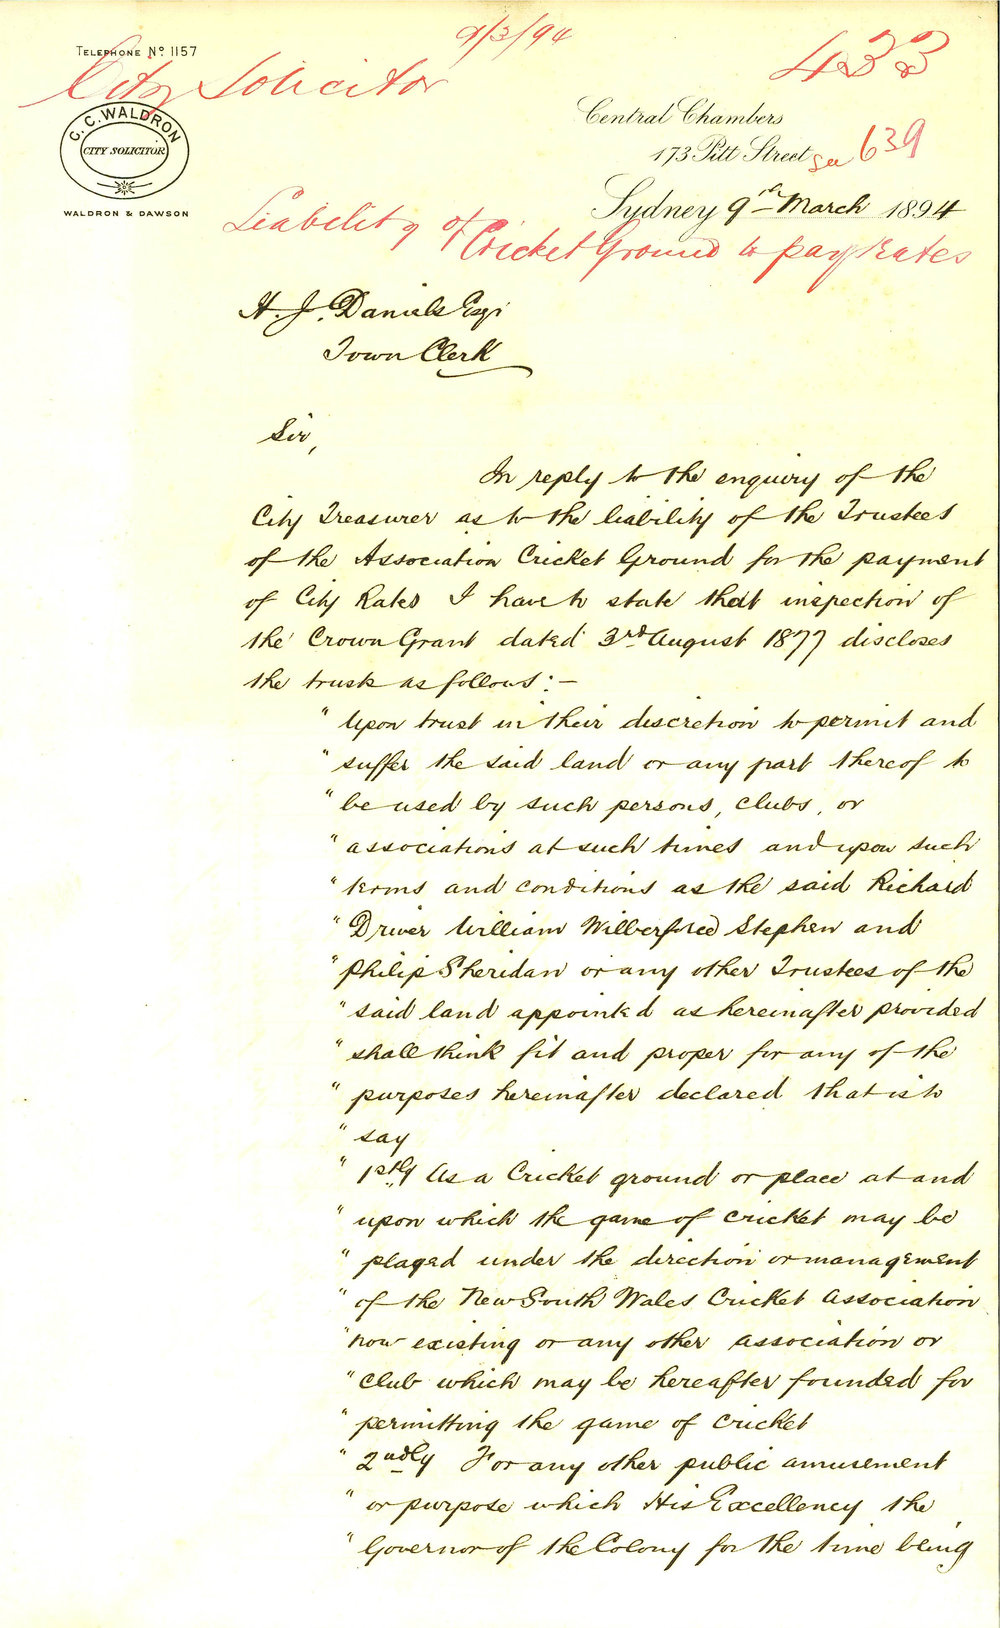 9/3/94
433
TELEPHONE No 1157
City Solicitor
C. C. WALDRON
CITY SOLICITOR
WALDRON & DAWSON
Central Chambers
173 Pitt Street
See 639
Sydney 9th March 1894
Liability of Cricket Ground to pay Rates
H. J. Daniels Esqr
Town Clerk
Sir,
In reply to the enquiry of the
City Treasurer as to the liability of the Trustees
of the Association Cricket Ground for the payment
of City Rates I have to state that inspection of
the Crown Grant dated 3rd August 1877 discloses
the trusts as follows:—
" Upon trust in their discretion to permit and
" suffer the said land or any part thereof to
" be used by such persons, clubs, or
" associations at such times and upon such
" terms and conditions as the said Richard
" Driver William Wilberforce Stephen and
" Philip Sheridan or any other Trustees of the
" said land appointed as hereinafter provided
" shall think fit and proper for any of the
" purposes hereinafter declared that is to
" say
" 1stly As a Cricket ground or place at and
" upon which the game of cricket may be
" played under the direction or management
" of the New South Wales Cricket Association
" now existing or any other association or
" club which may be hereafter founded for
" permitting the game of cricket
" 2ndly For any other public amusement
" or purpose which His Excellency the
" Governor of the Colony for the time being